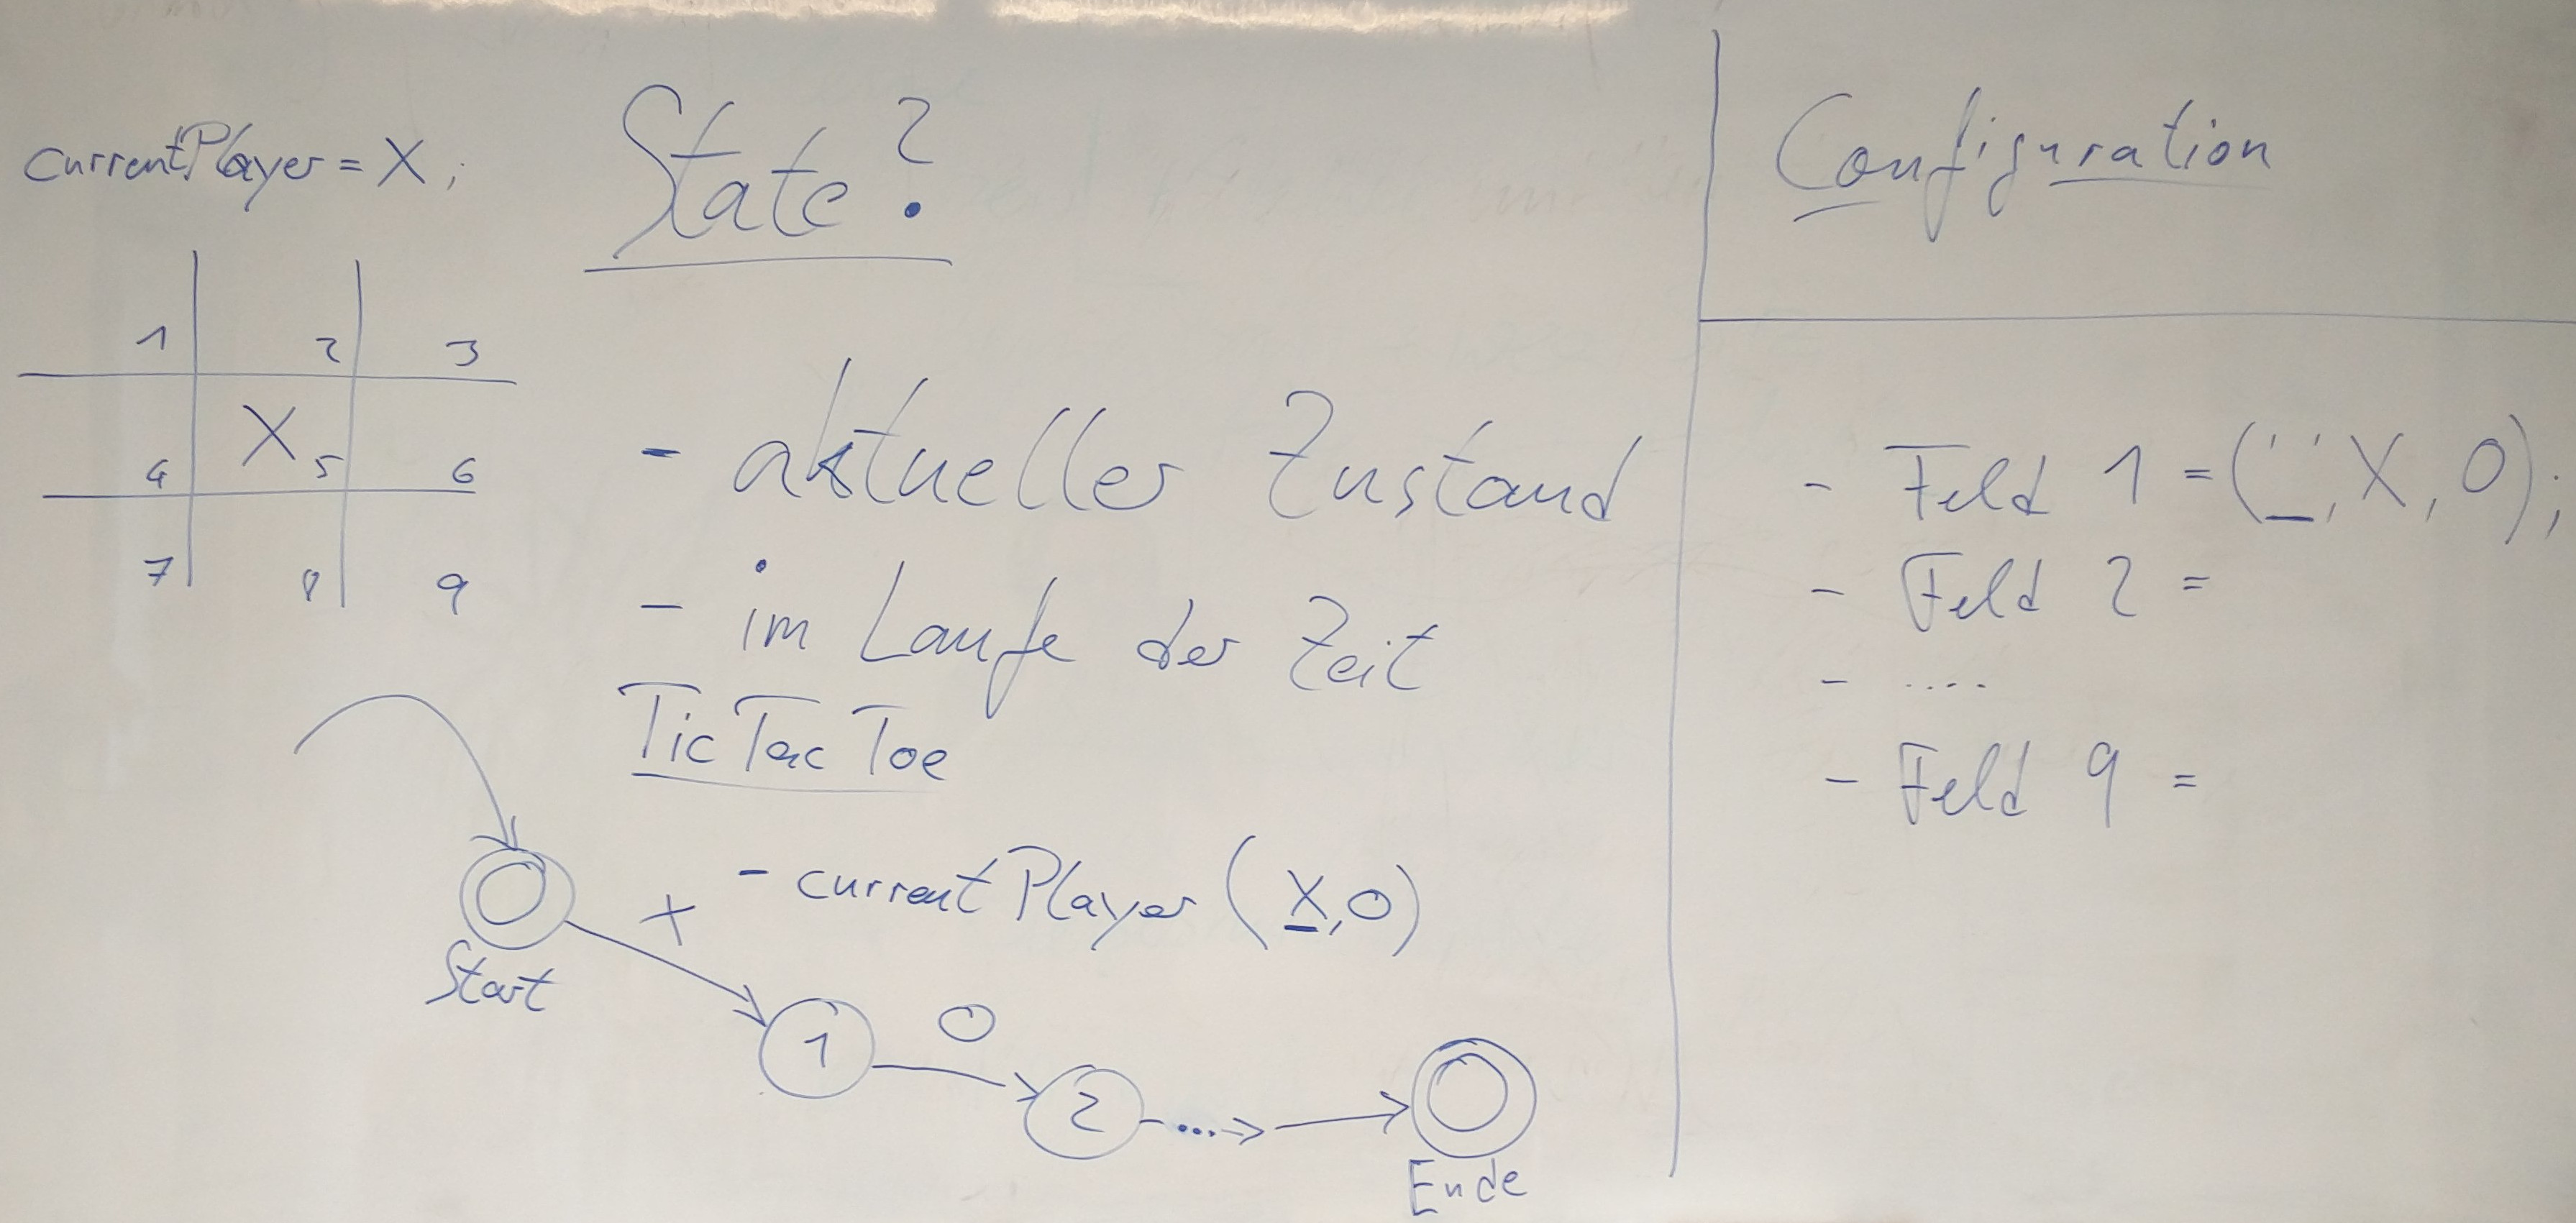 currentPlayer = X;
State?
1 2 3
4 X 5 6
7 8 9
- aktueller Zustand
- im Laufe der Zeit
Tic Tac Toe
- currentPlayer (X,O)
X
Start
1
O
2
...
Ende
Configuration
- Feld 1 = (' ', X, O);
- Feld 2 =
- ....
- Feld 9 =